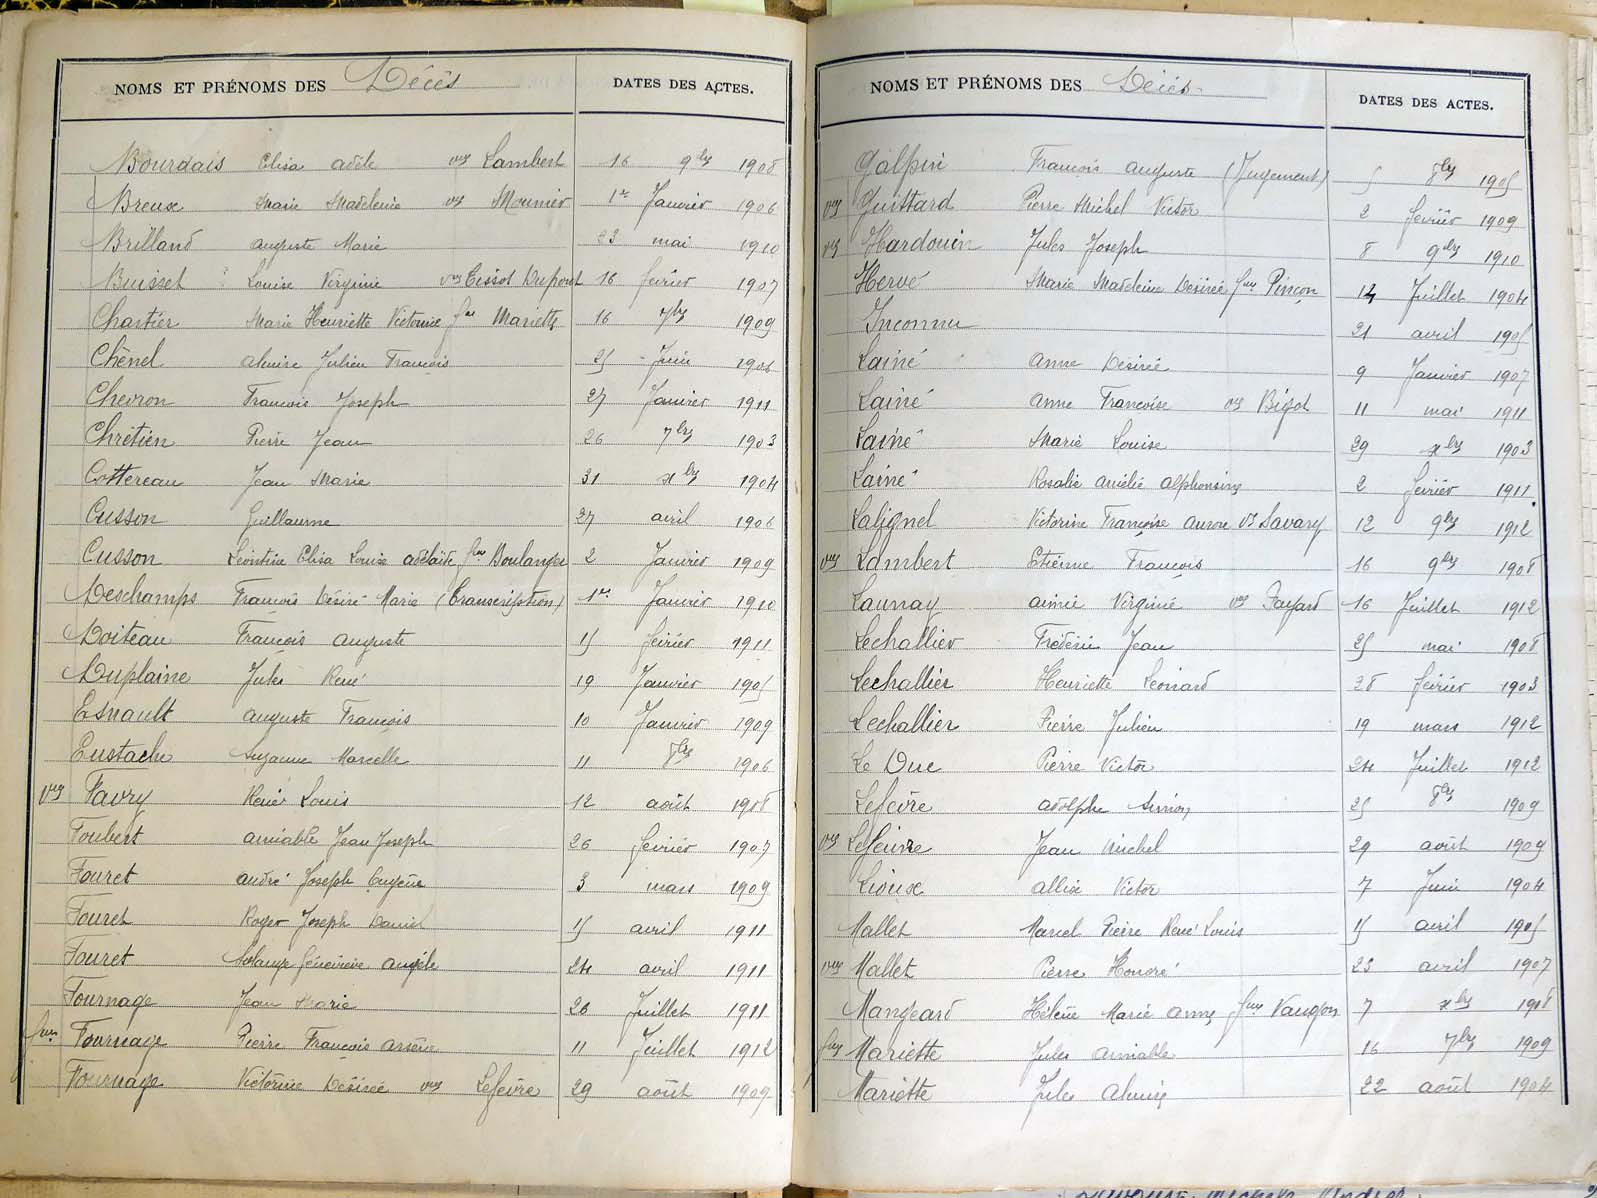 NOMS ET PRÉNOMS DES Décès DATES DES ACTES.
Bourdais Elisa adèle vve Lambert 16 9bre 1908
Breux Marie Madeleine vve Mounier 1er Janvier 1906
Brilland auguste Marie 23 mai 1910
Buisset Louise Virginie vve Tessot Duport 16 février 1907
Chartier Marie Henriette Victorine fme Mariette 16 7bre 1909
Chênel Julien François 25 Juin
Chevron François Joseph 27 Janvier 1911
Chrétien Pierre Jean 26 7bre 1903
Cottereau Jean Marie 31 xbre 1904
Cusson Guillaume 27 avril 1906
Cusson Léontine Elisa Louise adélaïde fme Boulanger 2 Janvier 1909
Deschamps François Désiré Marie (Transcription) 1er Janvier 1910
Doiteau François auguste 15 février 1911
Duplaine Jules René 19 Janvier 1905
Esnault auguste François 10 Janvier 1909
Eustache Suzanne Marcelle 11 8bre 1906
vve Favry René Louis 12 août 1908
Foubert aimable Jean Joseph 26 février 1907
Fouret andré Joseph Eugène 3 mars 1909
Fouret Roger Joseph Daniel 15 avril 1911
Fouret Solange Geneviève angèle 24 avril 1911
Fournage Jean Marie Juillet 1911
fme Fournage Pierre François arsène 11 Juillet 1912
Fournage Victorine Désirée vve Lefèvre 29 août 1909
NOMS ET PRÉNOMS DES Décès DATES DES ACTES.
Galpin François auguste (Jugement) 5 8bre 1905
vve Guittard Pierre Michel Victor 2 février 1909
vve Hardouin Jules Joseph 8 9bre 1910
Hervé Marie Madeleine Désirée fme Pinçon 14 Juillet 1904
Inconnu 21 avril 1905
Lainé anne Désirée 9 Janvier 1907
Lainé anne Françoise vve Bigot 11 mai 1911
Lainé Marie Louise 29 xbre 1903
Lainé Rosalie amélie alphonsine 2 février 1911
Lalignel Victorine Françoise aurore ve Savary 12 9bre 1912
vve Lambert Etienne François 16 9bre 1908
Launay aimée Virginie vve Fayard 16 Juillet 1912
Lechallier Frédéric Jean 25 mai 1908
Lechallier Henriette Léonard 28 février 1903
Lechallier Pierre Julien 19 mars 1912
Le Duc Pierre Victor 24 Juillet 1912
Lefèvre adolphe Simon 25 8bre 1909
vve Lefeuvre Jean Michel 29 août 1909
Lioux Victor 7 Juin 1904
Mallet Marcel Pierre René Louis 15 avril 1905
vve Mallet Pierre Honoré 23 avril 1907
Mangeard Hélène Marie anne fme Vaugon 7 xbre 1908
fme Mariette Jules aimable 16 7bre 1909
Mariette Jules 22 août 1904